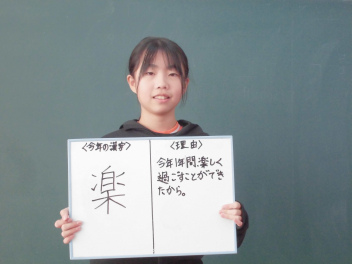 〈今年の漢字〉
楽
〈理由〉
今年1年間、楽しく
過ごすことができ
たから。